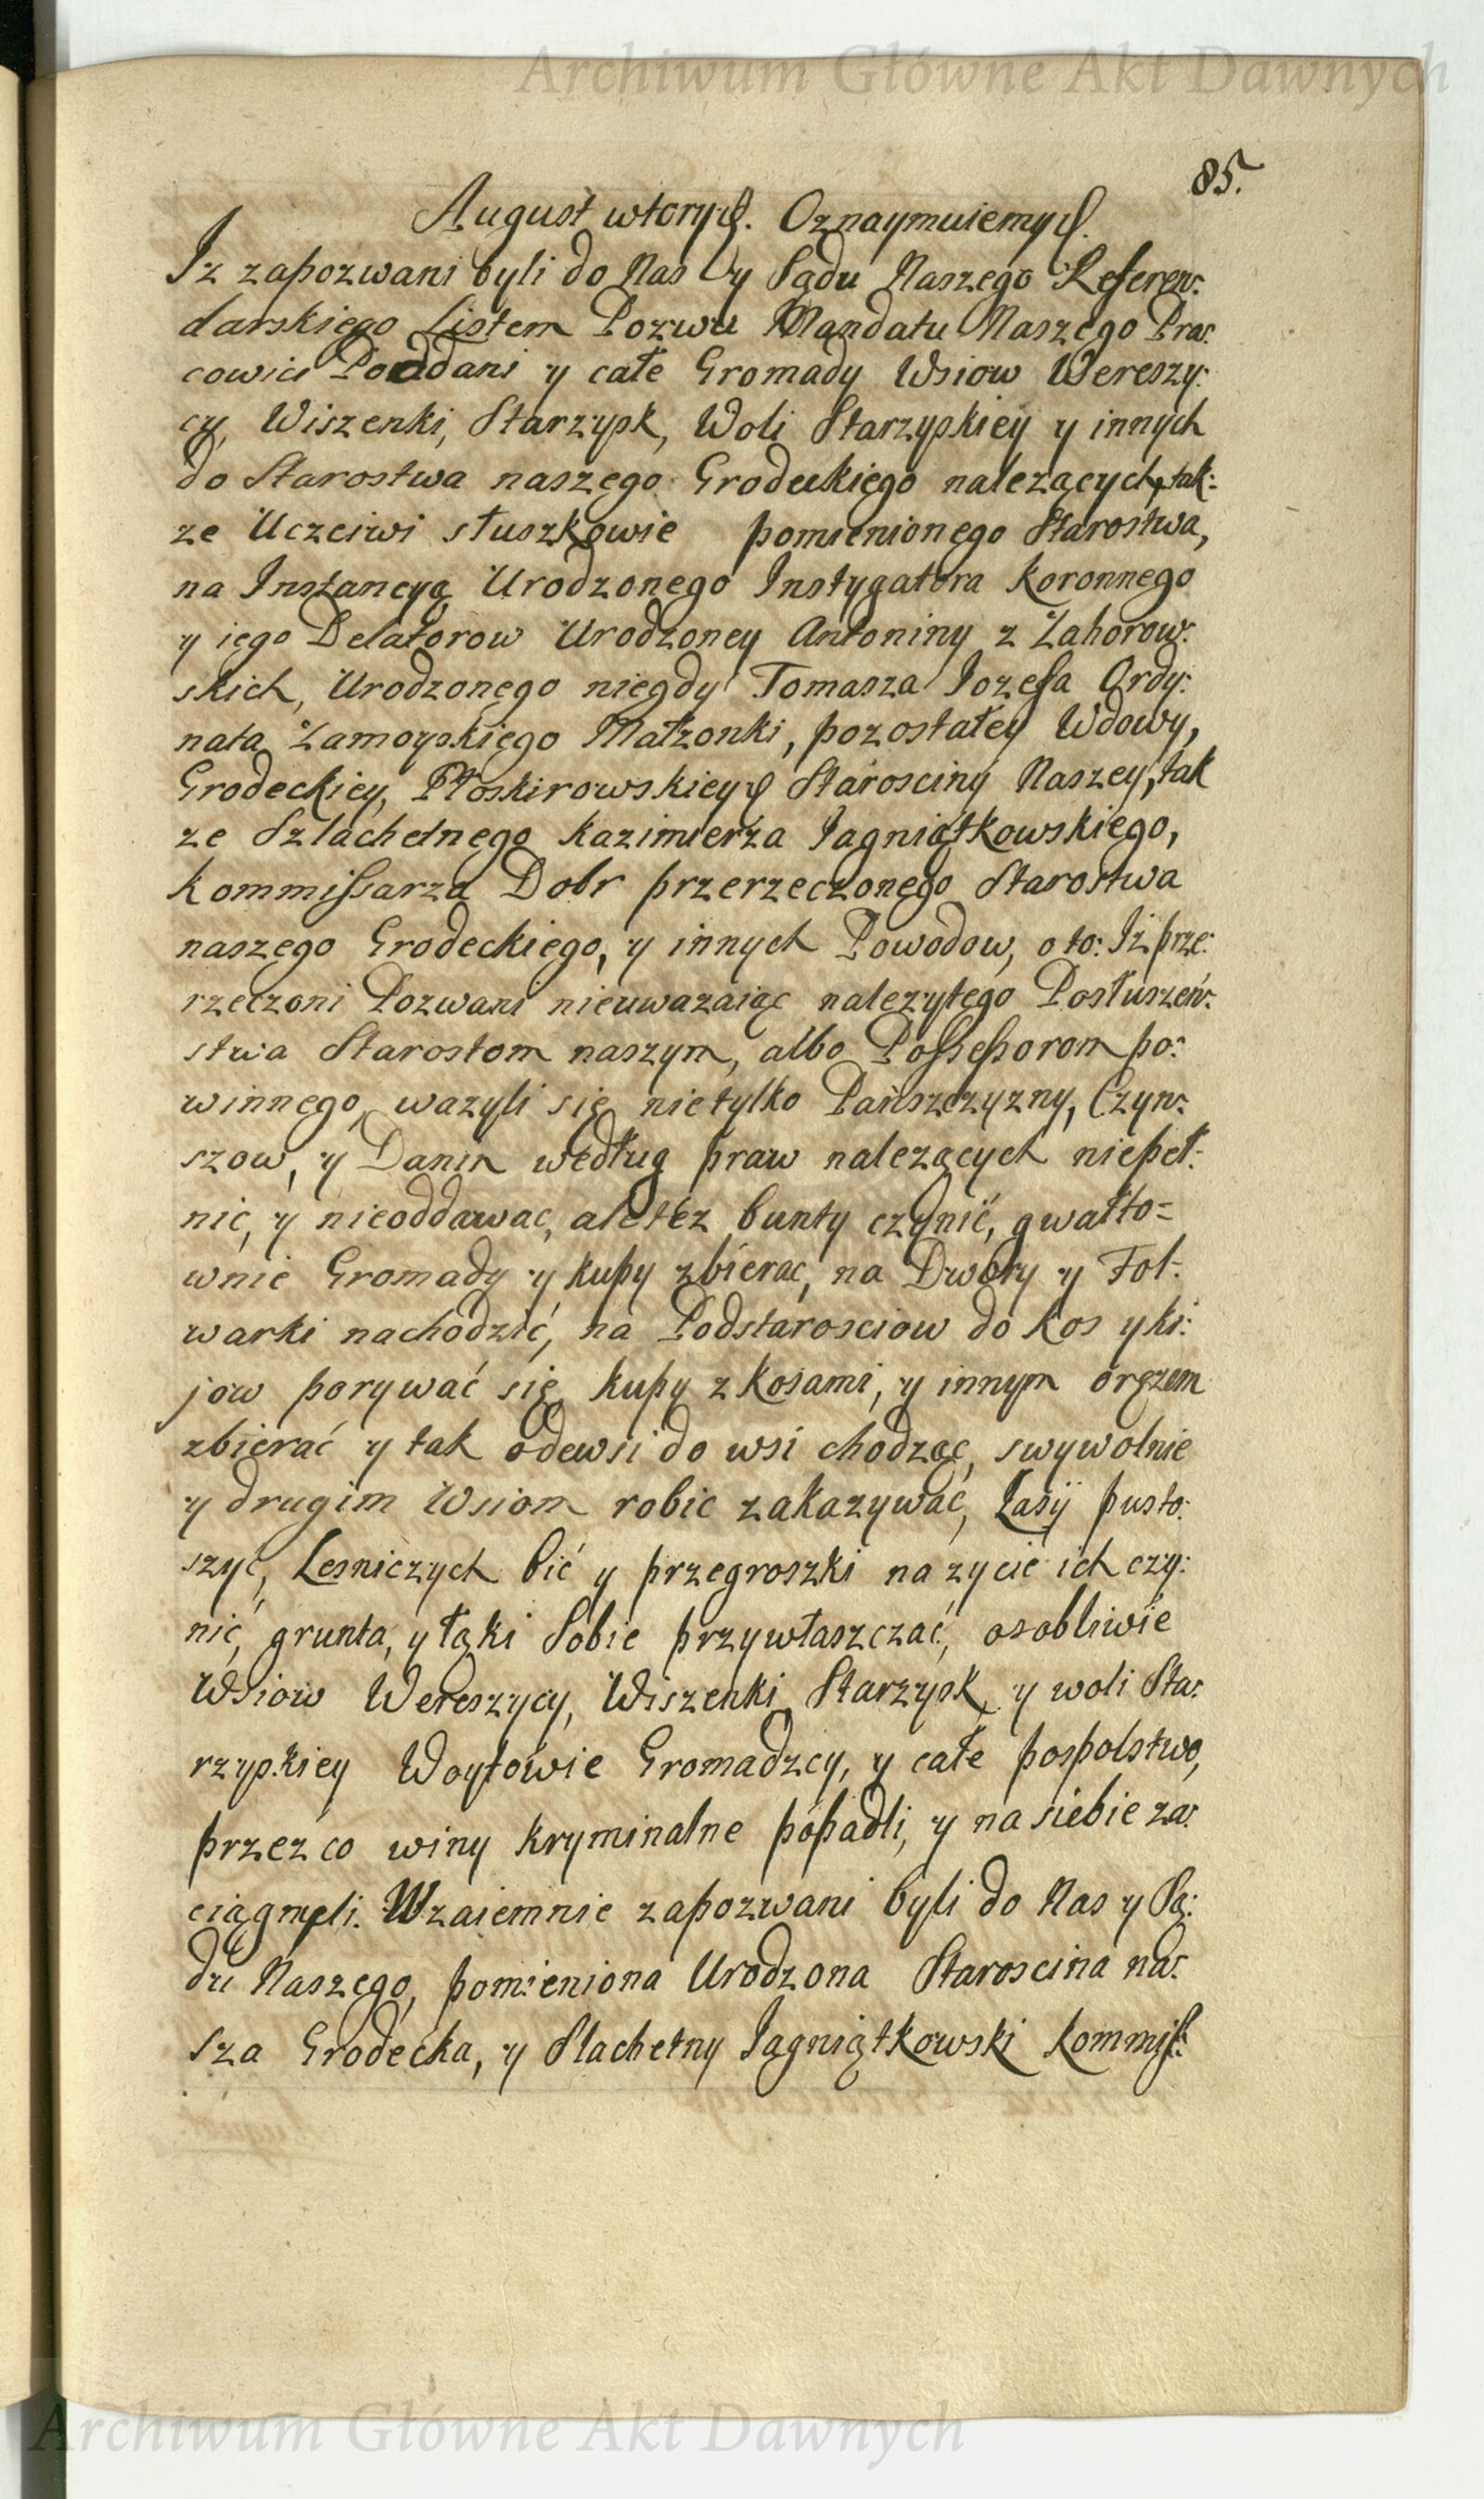 Archiwum Główne Akt Dawnych
85.
August wtory etc. Oznaymuiemy etc.
Iz zapozwani byli do Nas y Sądu Naszego Referen:
darskiego Listem Pozwu Mandatu Naszego Prac:
cowici Poddani y całe Gromady Wsiow Wereszy:
cy, Wiszenki, Starzysk, Woli Starzyskiey y innych
do Starostwa naszego Grodeckiego nalezących, tak:
ze Uczciwi słuszkowie pomienionego Starostwa,
na Instancyą Urodzonego Instygatora Koronnego
y iego Delatorow Urodzoney Antoniny z Zahorow:
skich, Urodzonego niegdy Tomasza Iozefa Ordy:
nata Zamoyskiego Małzonki, pozostałey Wdowy,
Grodeckiey, Płoskirowskiey etc Starosciny Naszey, tak
ze Szlachetnego Kazimierza Iagniątkowskiego,
Kommissarza Dobr przerzeczonego Starostwa
naszego Grodeckiego, y innych Powodow, o to: Iż prze:
rzeczoni Pozwani nieuwazaiąc nalezytego Posłuszeń:
stwa Starostom naszym, albo Possessorom po:
winnego, wazyli się nietylko Pańszczyzny, Czyn:
szow, y Danin według praw nalezących niepeł:
nić, y nieoddawac, ale też bunty czynić, gwałto=
wnie Gromady y kupy zbierac, na Dwory y Fol:
warki nachodzić, na Podstarosciow do Kos y ki:
jow porywać się kupy z Kosami, y innym orężem
zbierać y tak odewsi do wsi chodząc, swywolnie
y drugim Wsiom robic zakazywać, Lasy pusto:
szyć, Lesniczych bić y przegroszki na zycie ich czy:
nić, grunta, y łąki Sobie przywłaszczać, osobliwie
Wsiow Wereszycy, Wiszenki, Starzysk, y woli Sta:
rzyskiey Woytowie Gromadzcy, y całe pospolstwo,
przez co winy kryminalne popadli, y na siebie za:
ciągneli. Wzaiemnie zapozwani byli do Nas y Są:
du Naszego, pomieniona Urodzona Staroscina na:
sza Grodecka, y Slachetny Iagniątkowski Kommiss:
Archiwum Główne Akt Dawnych